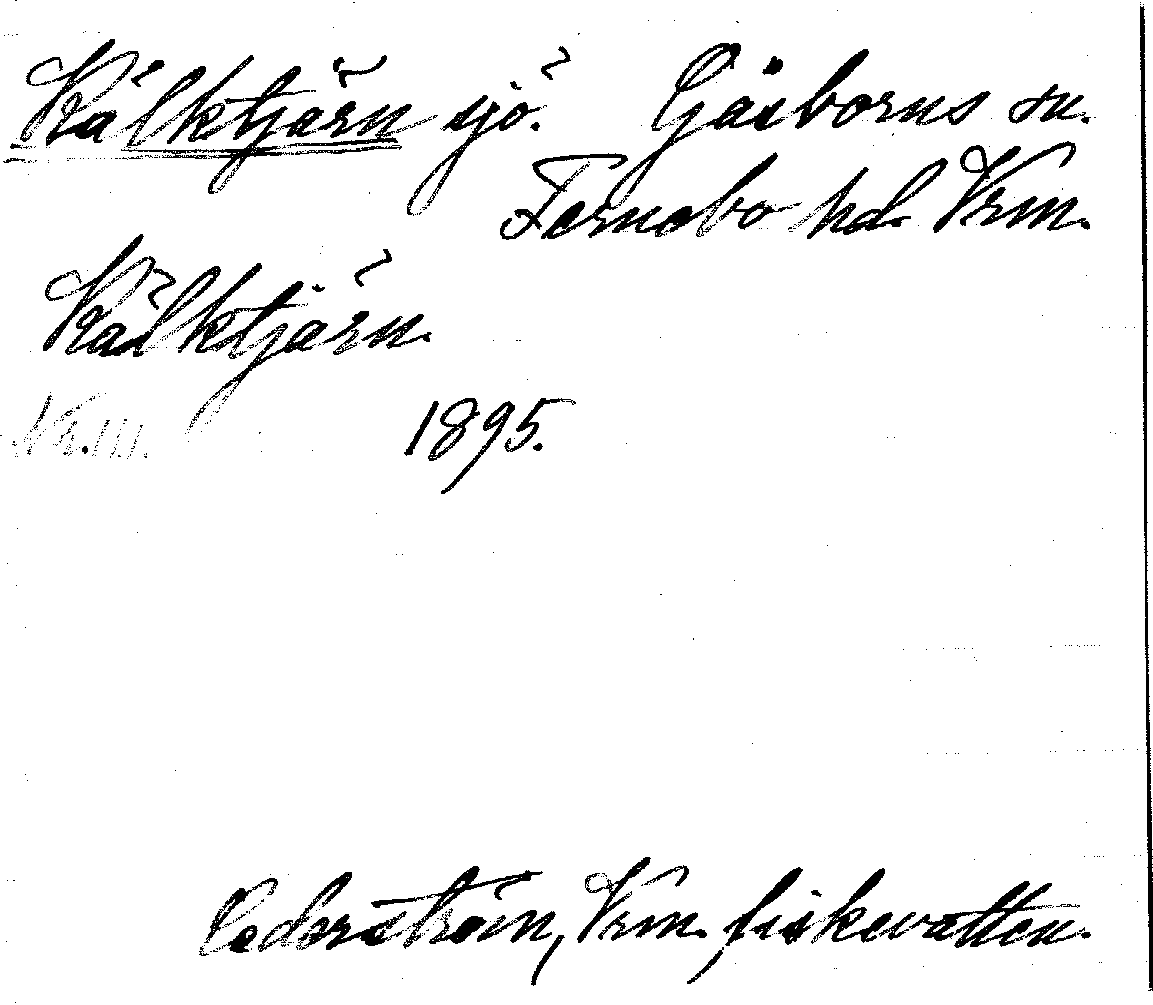 Kälktjärn sjö. Gåsborns sn.
Fernebo hd. Vrm.
Kälktjärn.
1895.
Cederström, Vrm. fiskevatten.